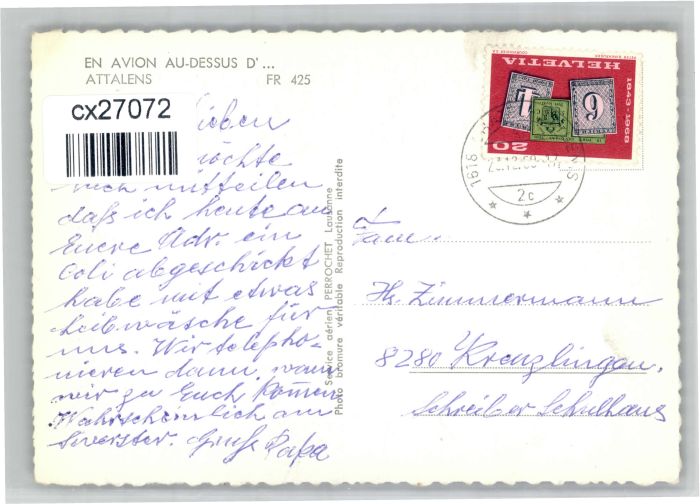 EN AVION AU-DESSUS D'...
ATTALENS FR 425
cx27072
ieben
möchte
euch mitteilen
daß ich heute an
Euere Adr. ein
Coli abgeschickt
habe mit etwas
Leibwäsche für
uns. Wir telepho-
nieren dann, wann
wir zu Euch kommen
Wahrscheinlich am
Sivester. Gruß Papa
Service aérien PERROCHET Lausanne
Photo bromure véritable Reproduction interdite
HELVETIA
1843-1968
20
1616
2c
Fam.
Hs. Zimmermann
8280 Kreuzlingen.
Schreiber Schulhaus